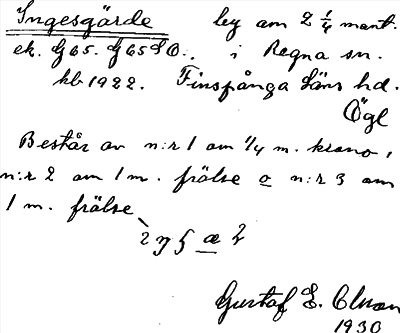 Ingesgärde bey om 2 1/4 mant.
ek. G 65. G 65 S O. i Regna sn.
kb 1922. Finspånga läns hd.
Ögl
Består av n:r 1 om 1/4 m. krono,
n:r 2 om 1 m. frälse o n:r 3 om
1 m. frälse
Gustaf E. Olsson
1930